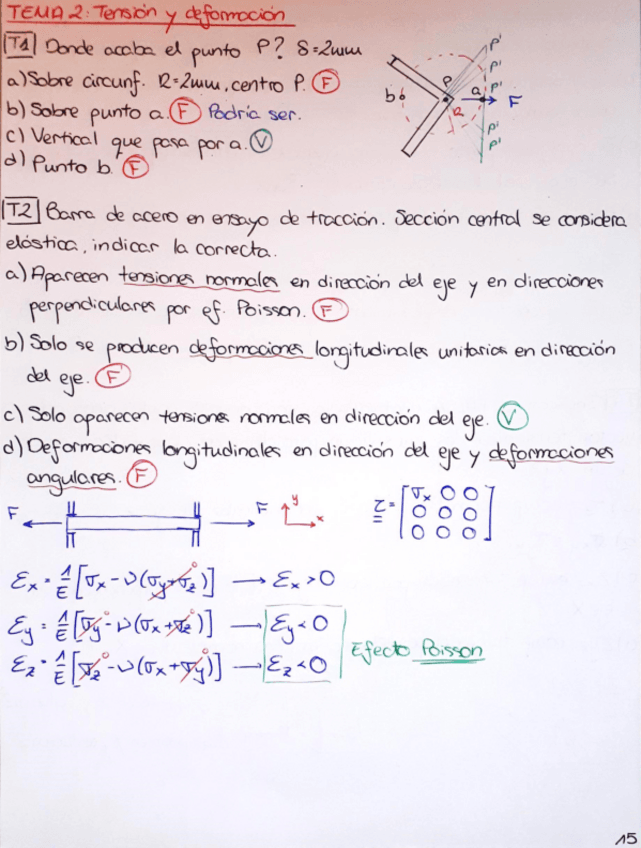 TEMA 2: Tensión y deformación
T1 Donde acaba el punto P? δ=2mm
a) Sobre circunf. R=2mm, centro P. F
b) Sobre punto a. F Podría ser.
c) Vertical que pasa por a. V
d) Punto b. F
P'
P'
P'
P
a
b
R
F
P'
P'
T2 Barra de acero en ensayo de tracción. Sección central se considera
elástica, indicar la correcta.
a) Aparecen tensiones normales en dirección del eje y en direcciones
perpendiculares por ef. Poisson. F
b) Solo se producen deformaciones longitudinales unitarias en dirección
del eje. F
c) Solo aparecen tensiones normales en dirección del eje. V
d) Deformaciones longitudinales en dirección del eje y deformaciones
angulares. F
F F y x
Σ = [σx 0 0
0 0 0
0 0 0]
εx = 1/E [σx - ν(σy + σz)] → εx > 0
εy = 1/E [σy - ν(σx + σz)] → εy < 0
εz = 1/E [σz - ν(σx + σy)] → εz < 0
Efecto Poisson
15